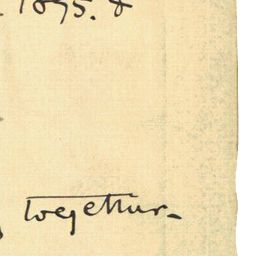 1895. &
together-